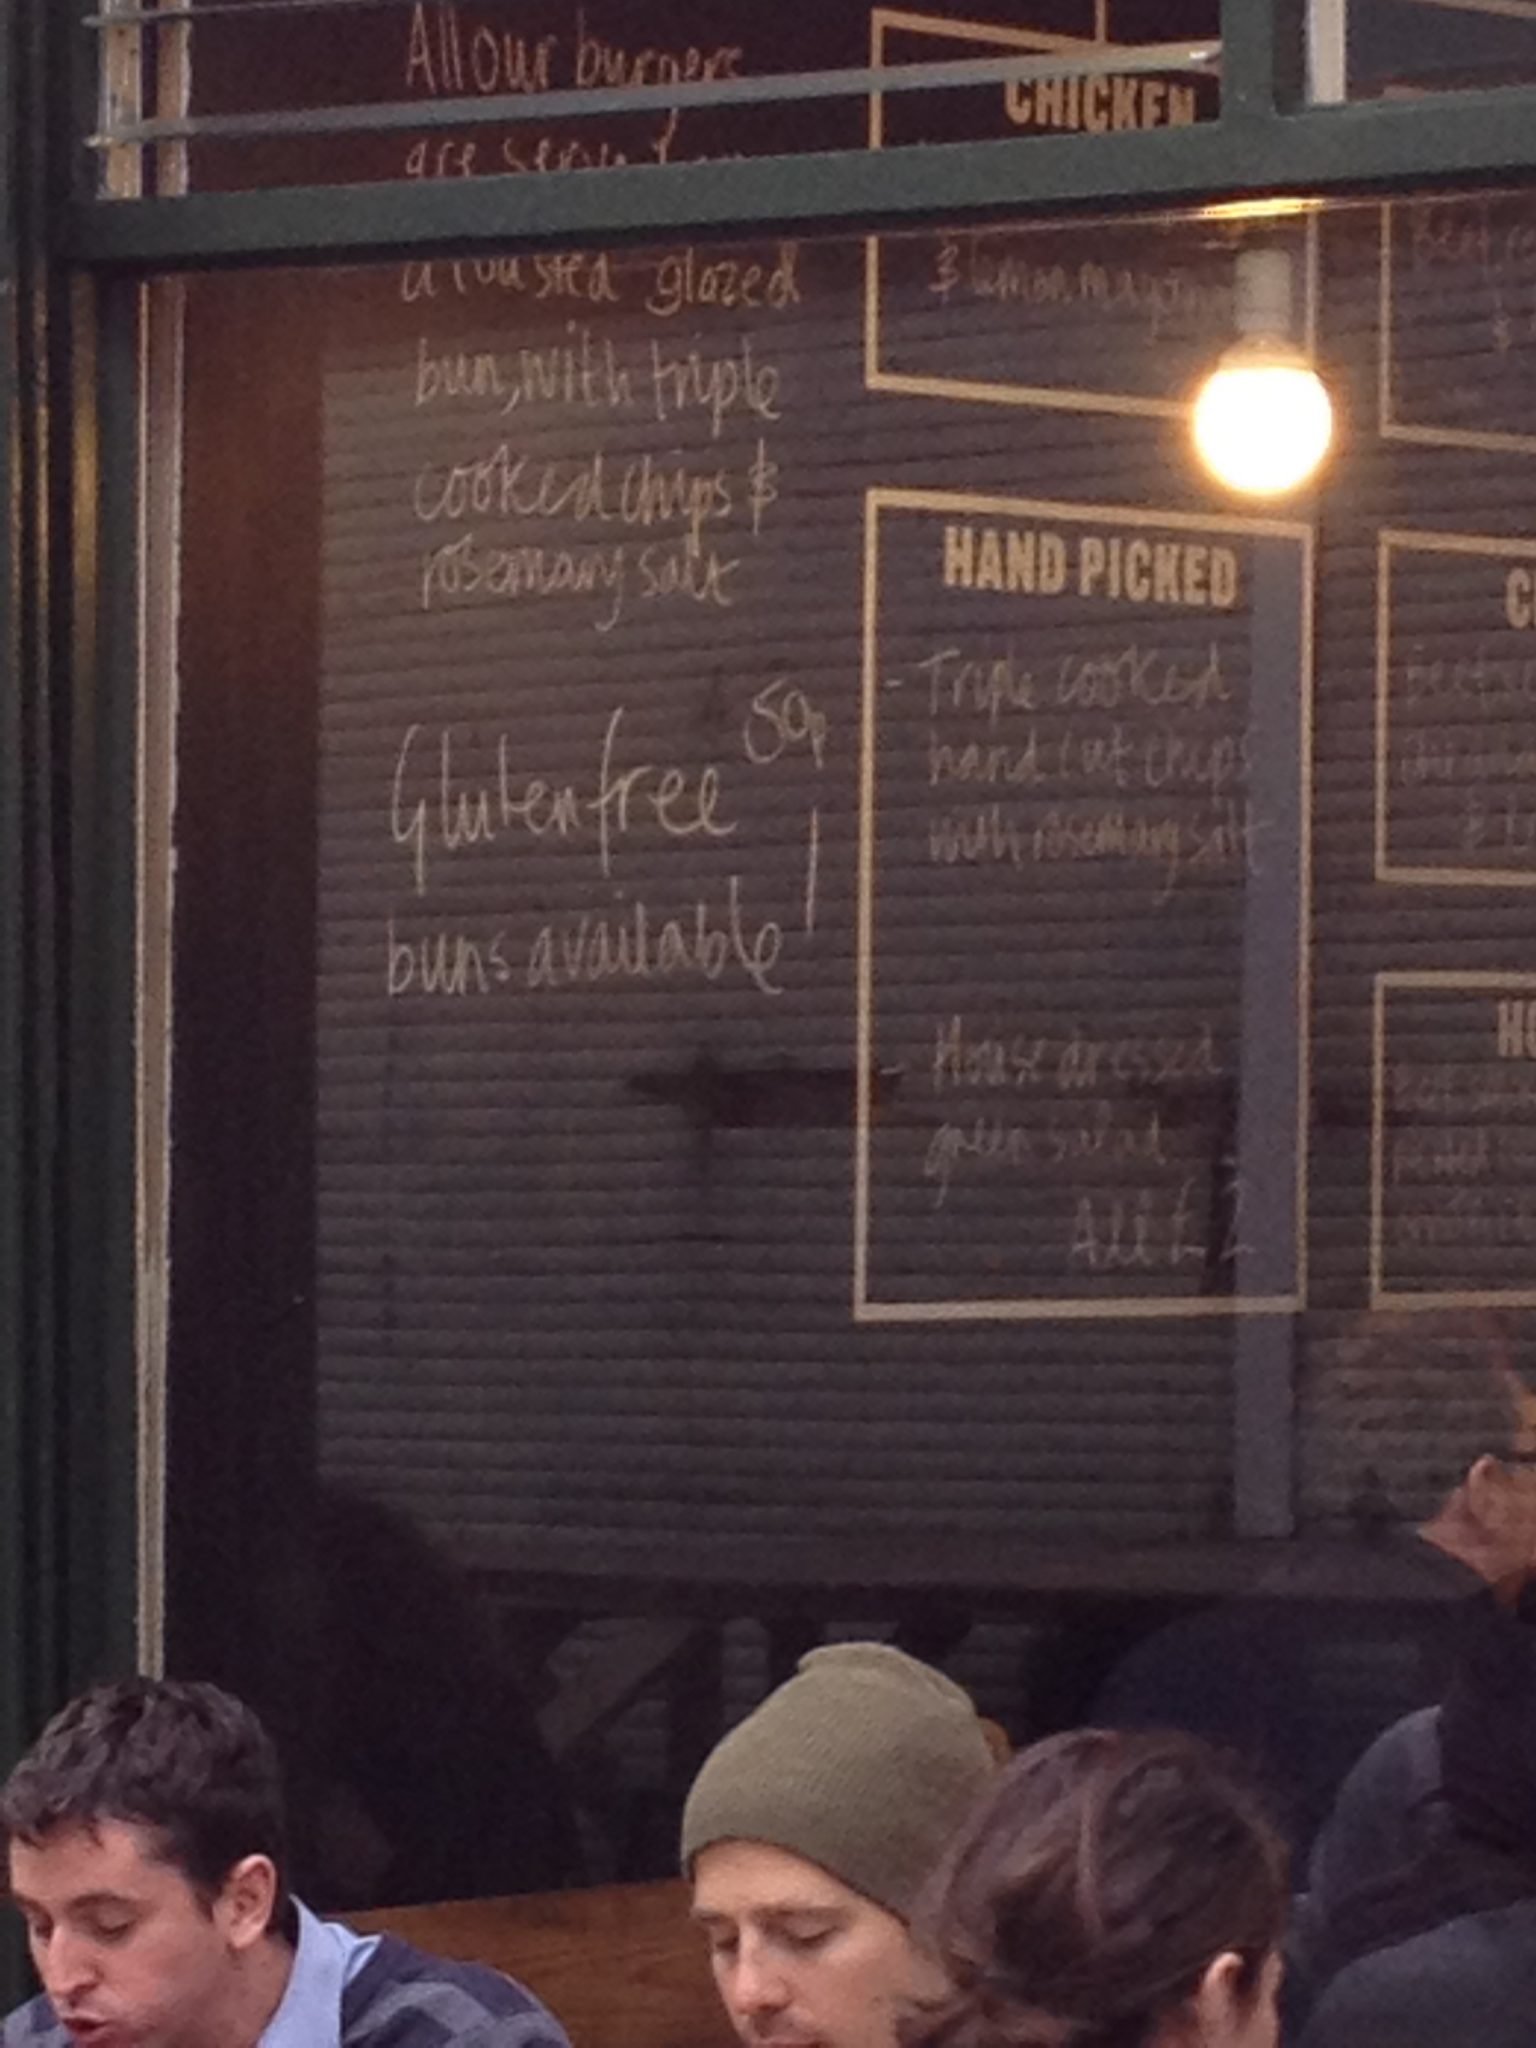 All our burgers
are serve
a toasted glazed
bun, with triple
cooked chips &
rosemary salt
Gluten free 50p
buns available
CHICKEN
& lemon mayo
HAND PICKED
- Triple cooked
hand cut chips
with rosemary salt
- House dressed
green salad
Add £2